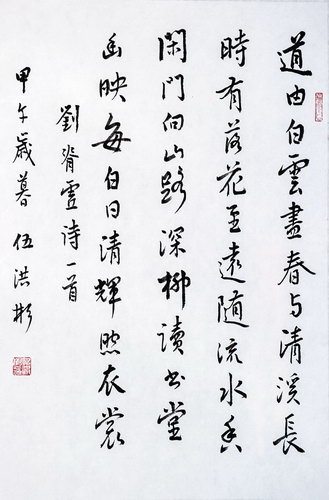 道由白雲盡春与清溪長
時有落花至遠随流水香
閑門向山路深柳讀书堂
幽映每白日清輝照衣裳
劉脊虚诗一首
甲午歲暮 伍洪彬